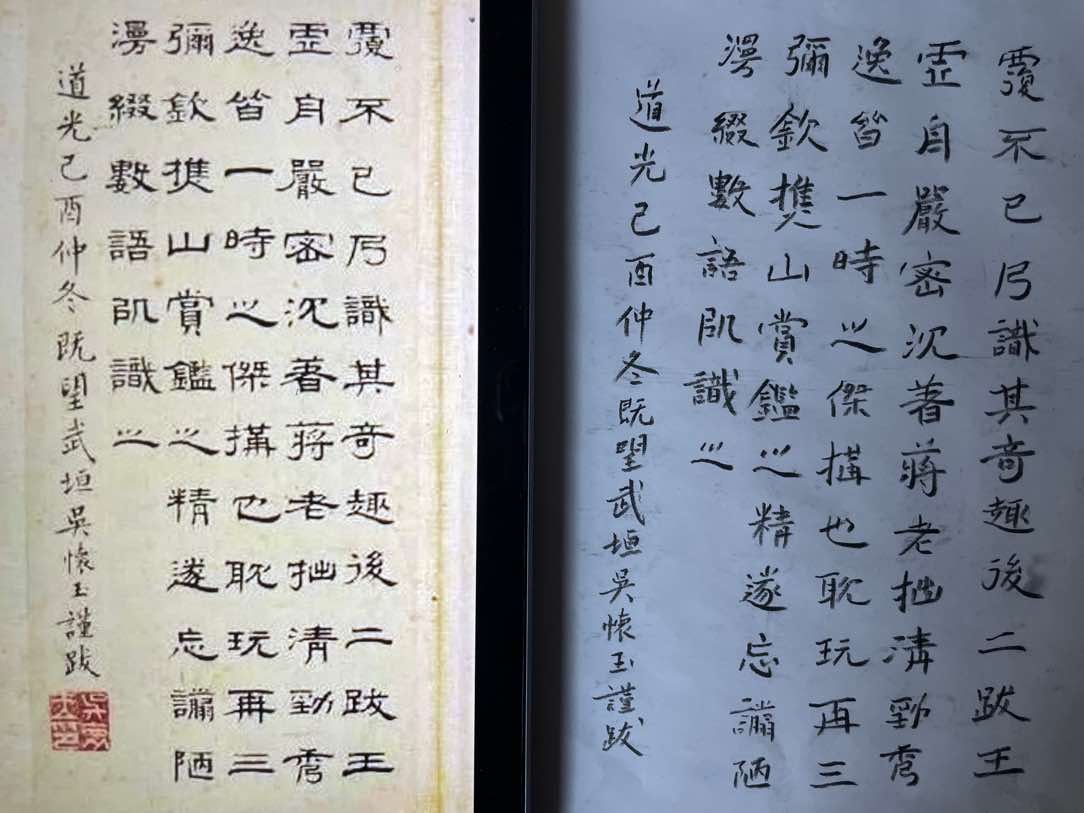 覆不已乃識其奇趣後二跋王
虛自嚴密沉著蔣老拙清勁秀
逸皆一時之傑搆也耽玩再三
彌欽攜山賞鑑之精遂忘謭陋
漫綴數語以識之
道光己酉仲冬既望武垣吳懷玉謹跋
覆不已乃識其奇趣後二跋王
虛自嚴密沉著蔣老拙清勁秀
逸皆一時之傑搆也耽玩再三
彌欽攜山賞鑑之精遂忘謭陋
漫綴數語以識之
道光己酉仲冬既望武垣吳懷玉謹跋